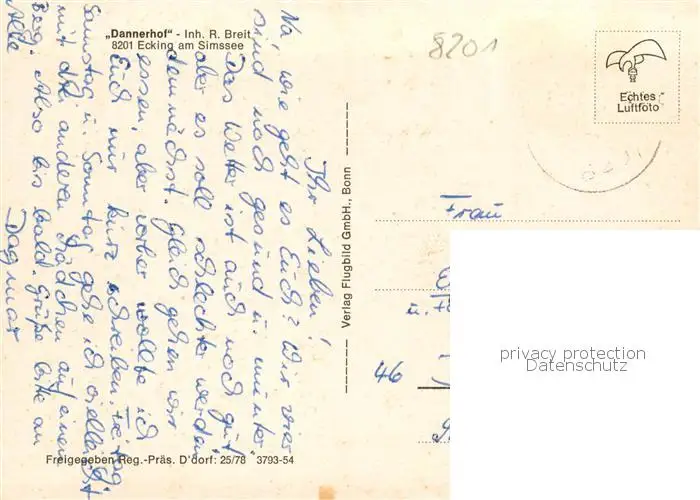 „Dannerhof" - Inh. R. Breit
8201 Ecking am Simssee
8201
Echtes
Luftfoto
Ihr Lieben!
Na wie geht es Euch? Wir vier
sind noch gesund u. munter.
Das Wetter ist auch noch gut
aber es soll schlechter werden
demnächst. Gleich gehen wir
essen, aber vorher wollte ich
Euch nur kurz schreiben. Freitag,
Samstag u. Sonntag gehe ich vielleicht
mit den anderen Mädchen auf einen
Berg. Also bis bald. Grüße bitte an
Alle
Dagmar
Verlag Flugbild GmbH., Bonn
Frau
u.
46
privacy protection
Datenschutz
Freigegeben Reg.-Präs. D'dorf: 25/78 3793-54